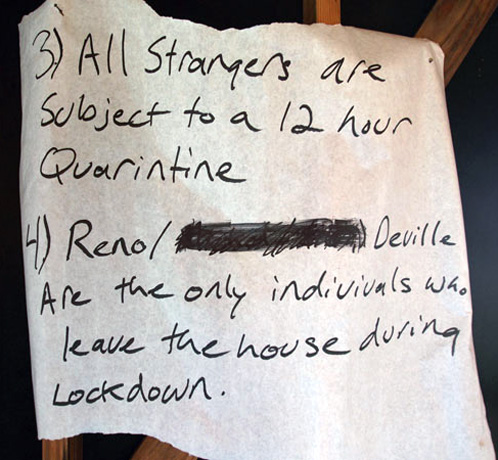 3) All Strangers are
Subject to a 12 hour
Quarintine
4) Reno/ Deville
Are the only indiviuals who
leave the house during
Lockdown.